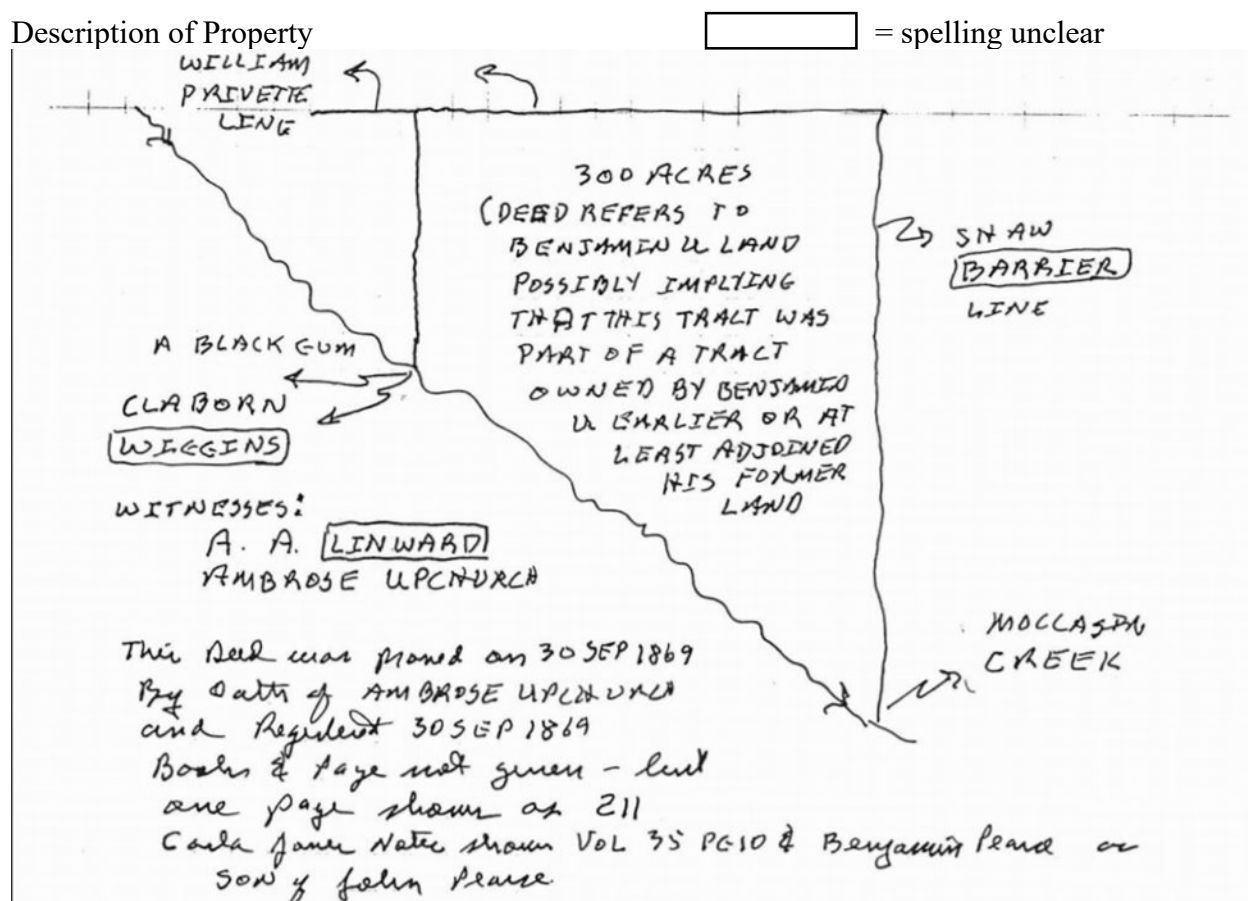 Description of Property
= spelling unclear
WILLIAM
PRIVETTE
LINE
300 ACRES
(DEED REFERS TO
BENJAMIN U LAND
POSSIBLY IMPLYING
THAT THIS TRACT WAS
PART OF A TRACT
OWNED BY BENJAMIN
U EARLIER OR AT
LEAST ADJOINED
HIS FORMER
LAND
SHAW
BARRIER
LINE
A BLACK GUM
CLABORN
WIGGINS
WITNESSES:
A. A. LINWARD
AMBROSE UPCHURCH
MOCCASIN
CREEK
This Deed was proved on 30 SEP 1869
By Oath of AMBROSE UPCHURCH
and Registered 30 SEP 1869
Book & Page not given - but
one page shown as 211
Carla Jones Notes shows VOL 35 PG 10 & Benjamin Pearce as
SON of John Pearce